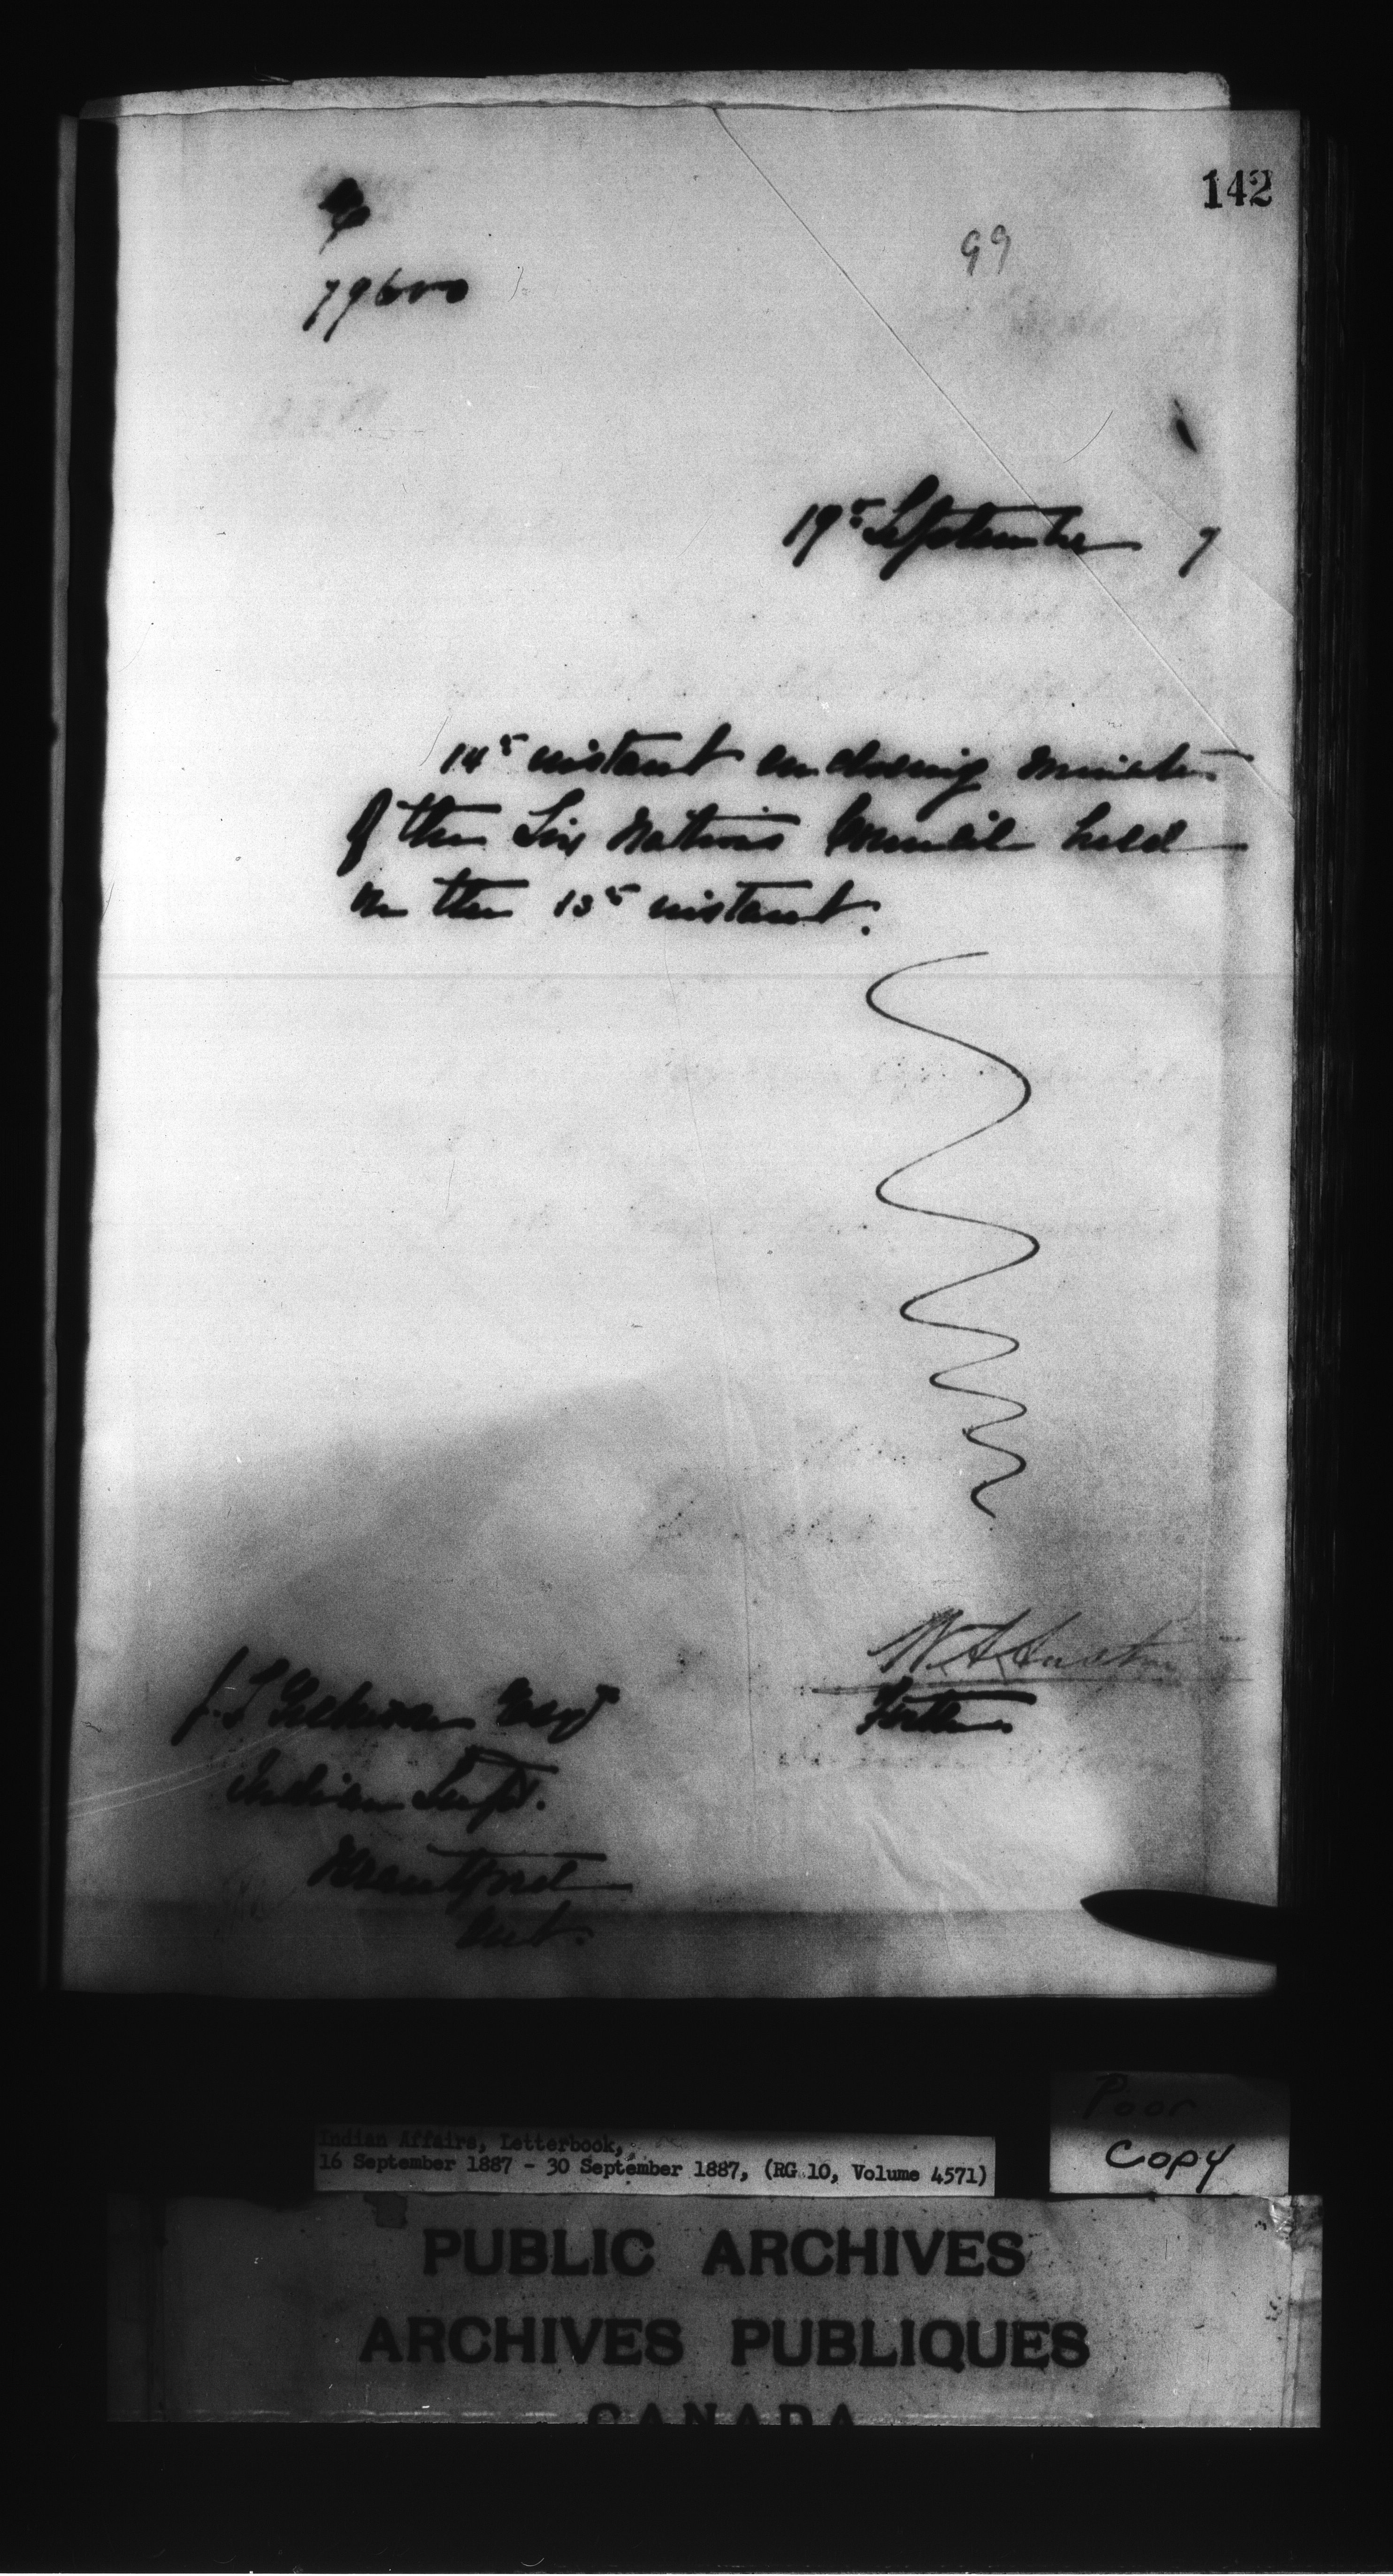 142
99
79600
19th September 7
14th instant enclosing minutes
of the Six Nations Council held
on the 13th instant.
W A Austin
For the
J. T. Gilkison Esqr
Indian Supt.
Brantford
Ont.
Poor
Copy
Indian Affairs, Letterbook,
16 September 1887 - 30 September 1887, (RG 10, Volume 4571)
PUBLIC ARCHIVES
ARCHIVES PUBLIQUES
CANADA